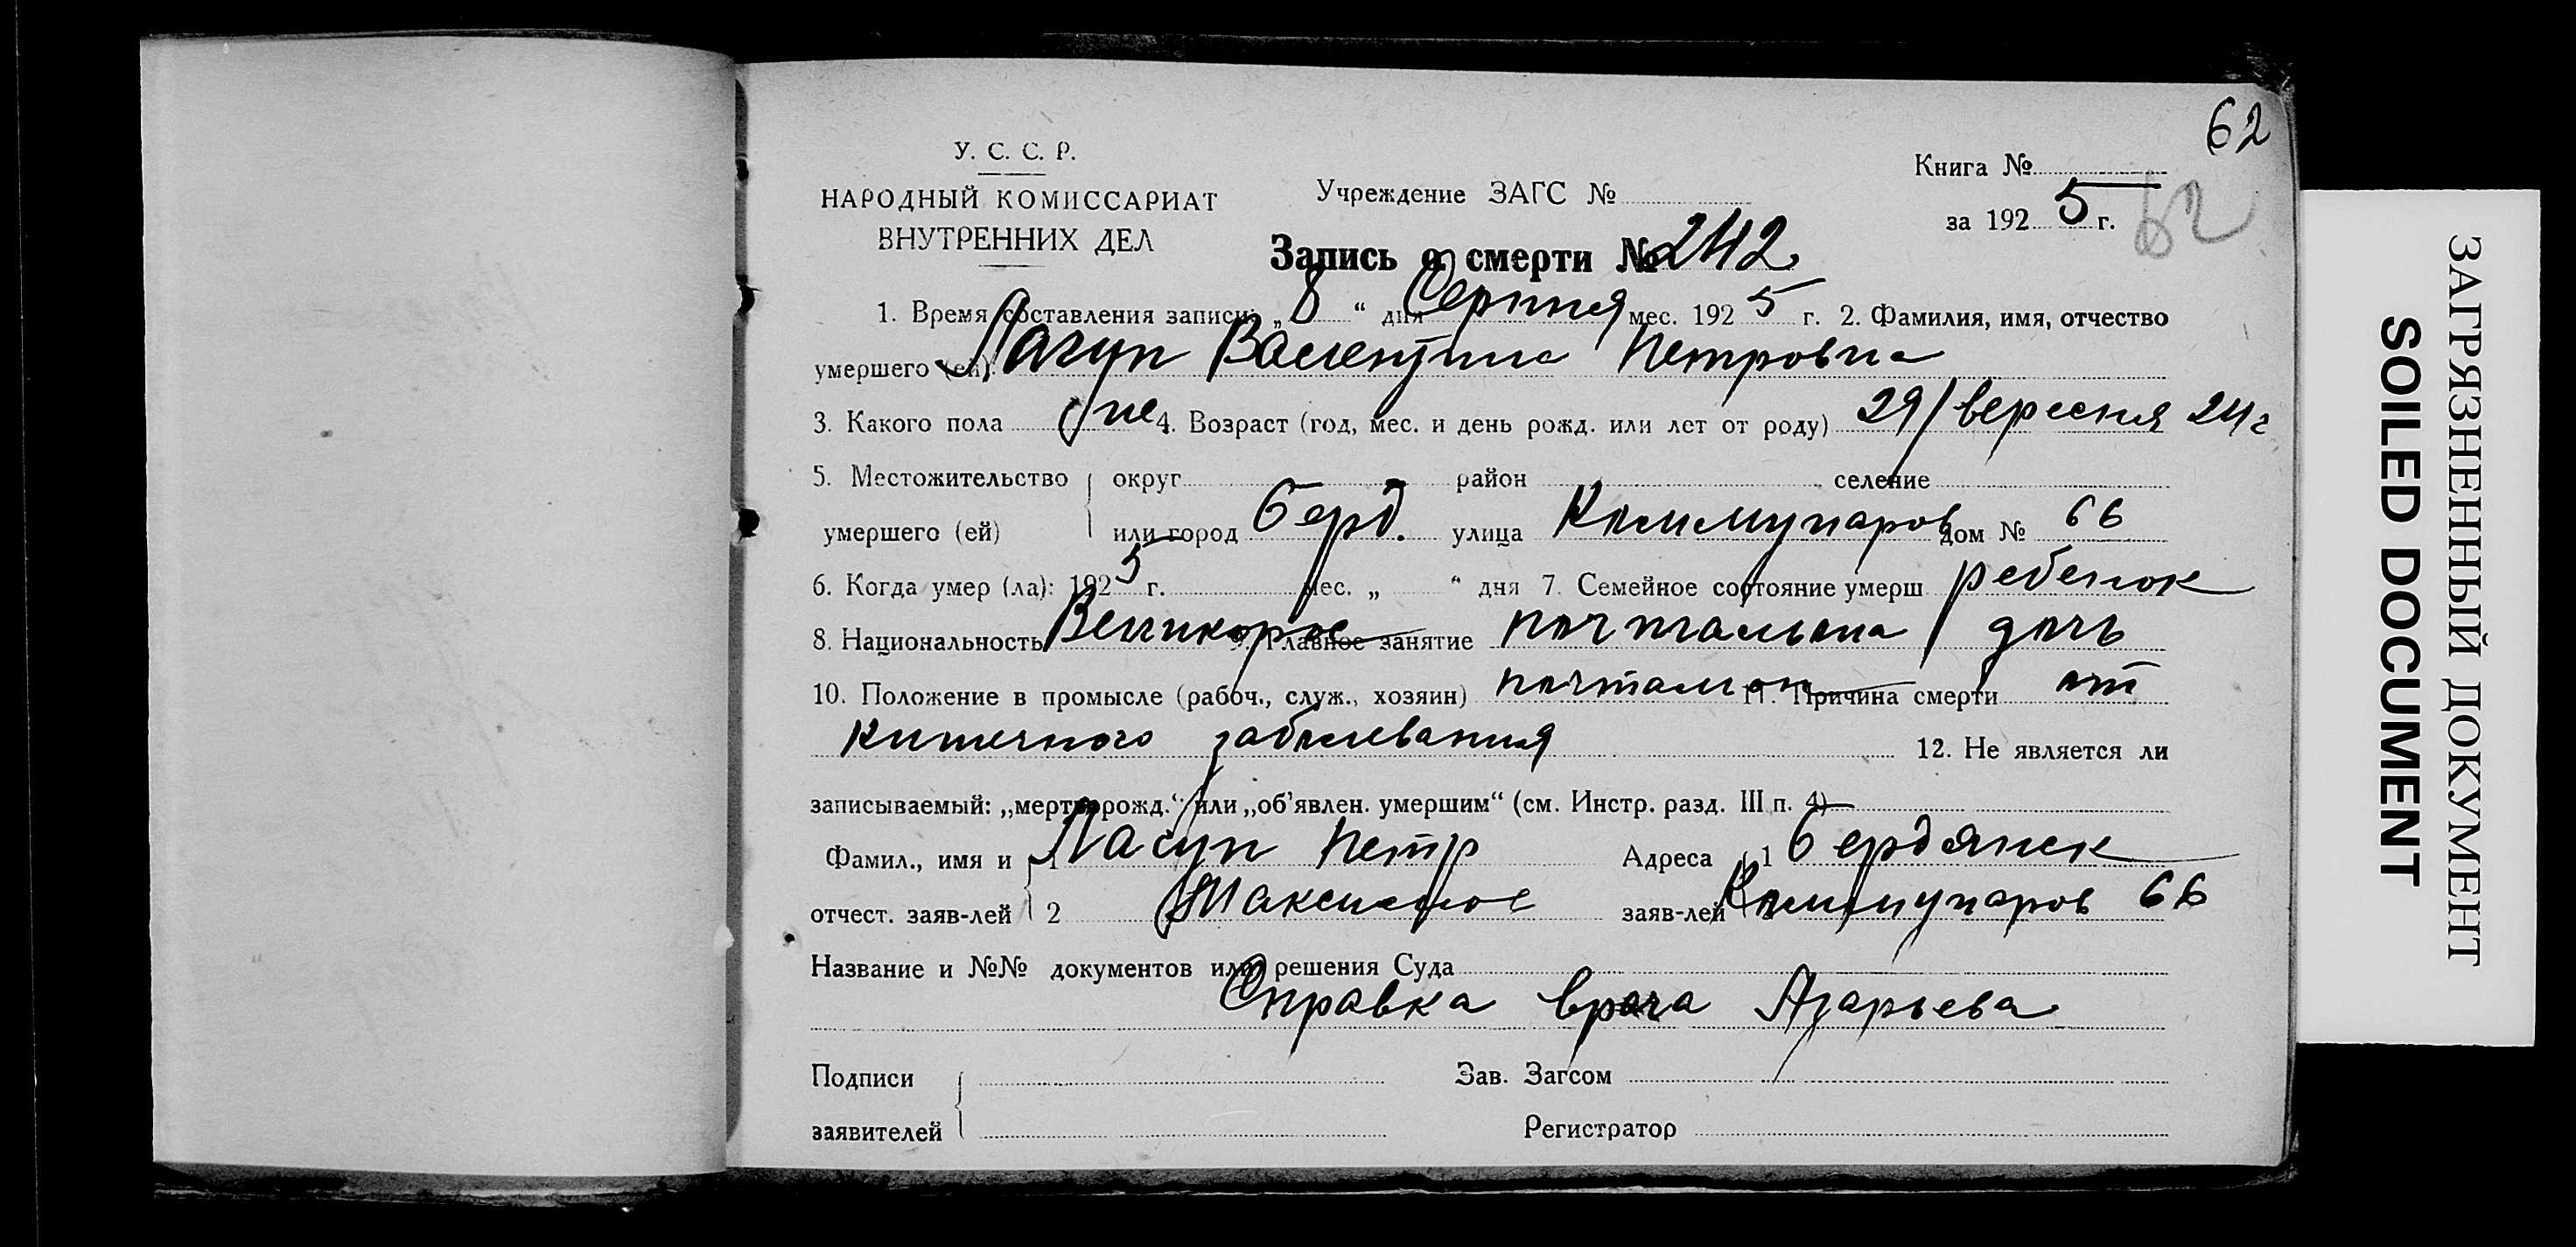 62
У. С. С. Р.
НАРОДНЫЙ КОМИССАРИАТ
ВНУТРЕННИХ ДЕЛ
Учреждение ЗАГС №
Книга №
за 192 5 г.
62
Запись о смерти № 242
1. Время составления записи: „ 8 “ дня Серпня мес. 192 5 г. 2. Фамилия, имя, отчество
умершего (ей): Лагун Валентина Петровна
3. Какого пола же 4. Возраст (год, мес. и день рожд. или лет от роду) 29/вересня 24 г
5. Местожительство округ район селение
умершего (ей) или город Берд. улица Коммунаров дом № 66
6. Когда умер (ла): 192 5 г. мес. „ “ дня 7. Семейное состояние умерш ребенок
8. Национальность Великорос 9. Главное занятие почтальона дочь
10. Положение в промысле (рабоч., служ., хозяин) почтальон 11. Причина смерти от
кишечного заболевания 12. Не является ли
записываемый: „мертворожд.“ или „об’явлен. умершим“ (см. Инстр. разд. III п. 4)
Фамил., имя и 1 Петр Адреса 1 Бердянск
отчест. заяв-лей 2 заяв-лей Коммунаров 66
Название и №№ документов или решения Суда
Справка врача Азарьева
Подписи Зав. Загсом
заявителей Регистратор
ЗАГРЯЗНЕННЫЙ ДОКУМЕНТ
SOILED DOCUMENT